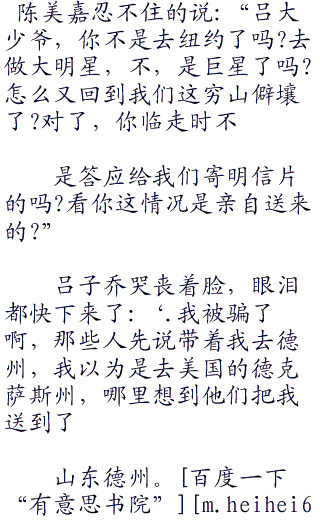 陈美嘉忍不住的说:“吕大
少爷，你不是去纽约了吗?去
做大明星，不，是巨星了吗?
怎么又回到我们这穷山僻壤
了?对了，你临走时不
是答应给我们寄明信片
的吗?看你这情况是亲自送来
的?”
吕子乔哭丧着脸，眼泪
都快下来了: ‘.我被骗了
啊，那些人先说带着我去德
州，我以为是去美国的德克
萨斯州，哪里想到他们把我
送到了
山东德州。[百度一下
“有意思书院”][m.heihei6